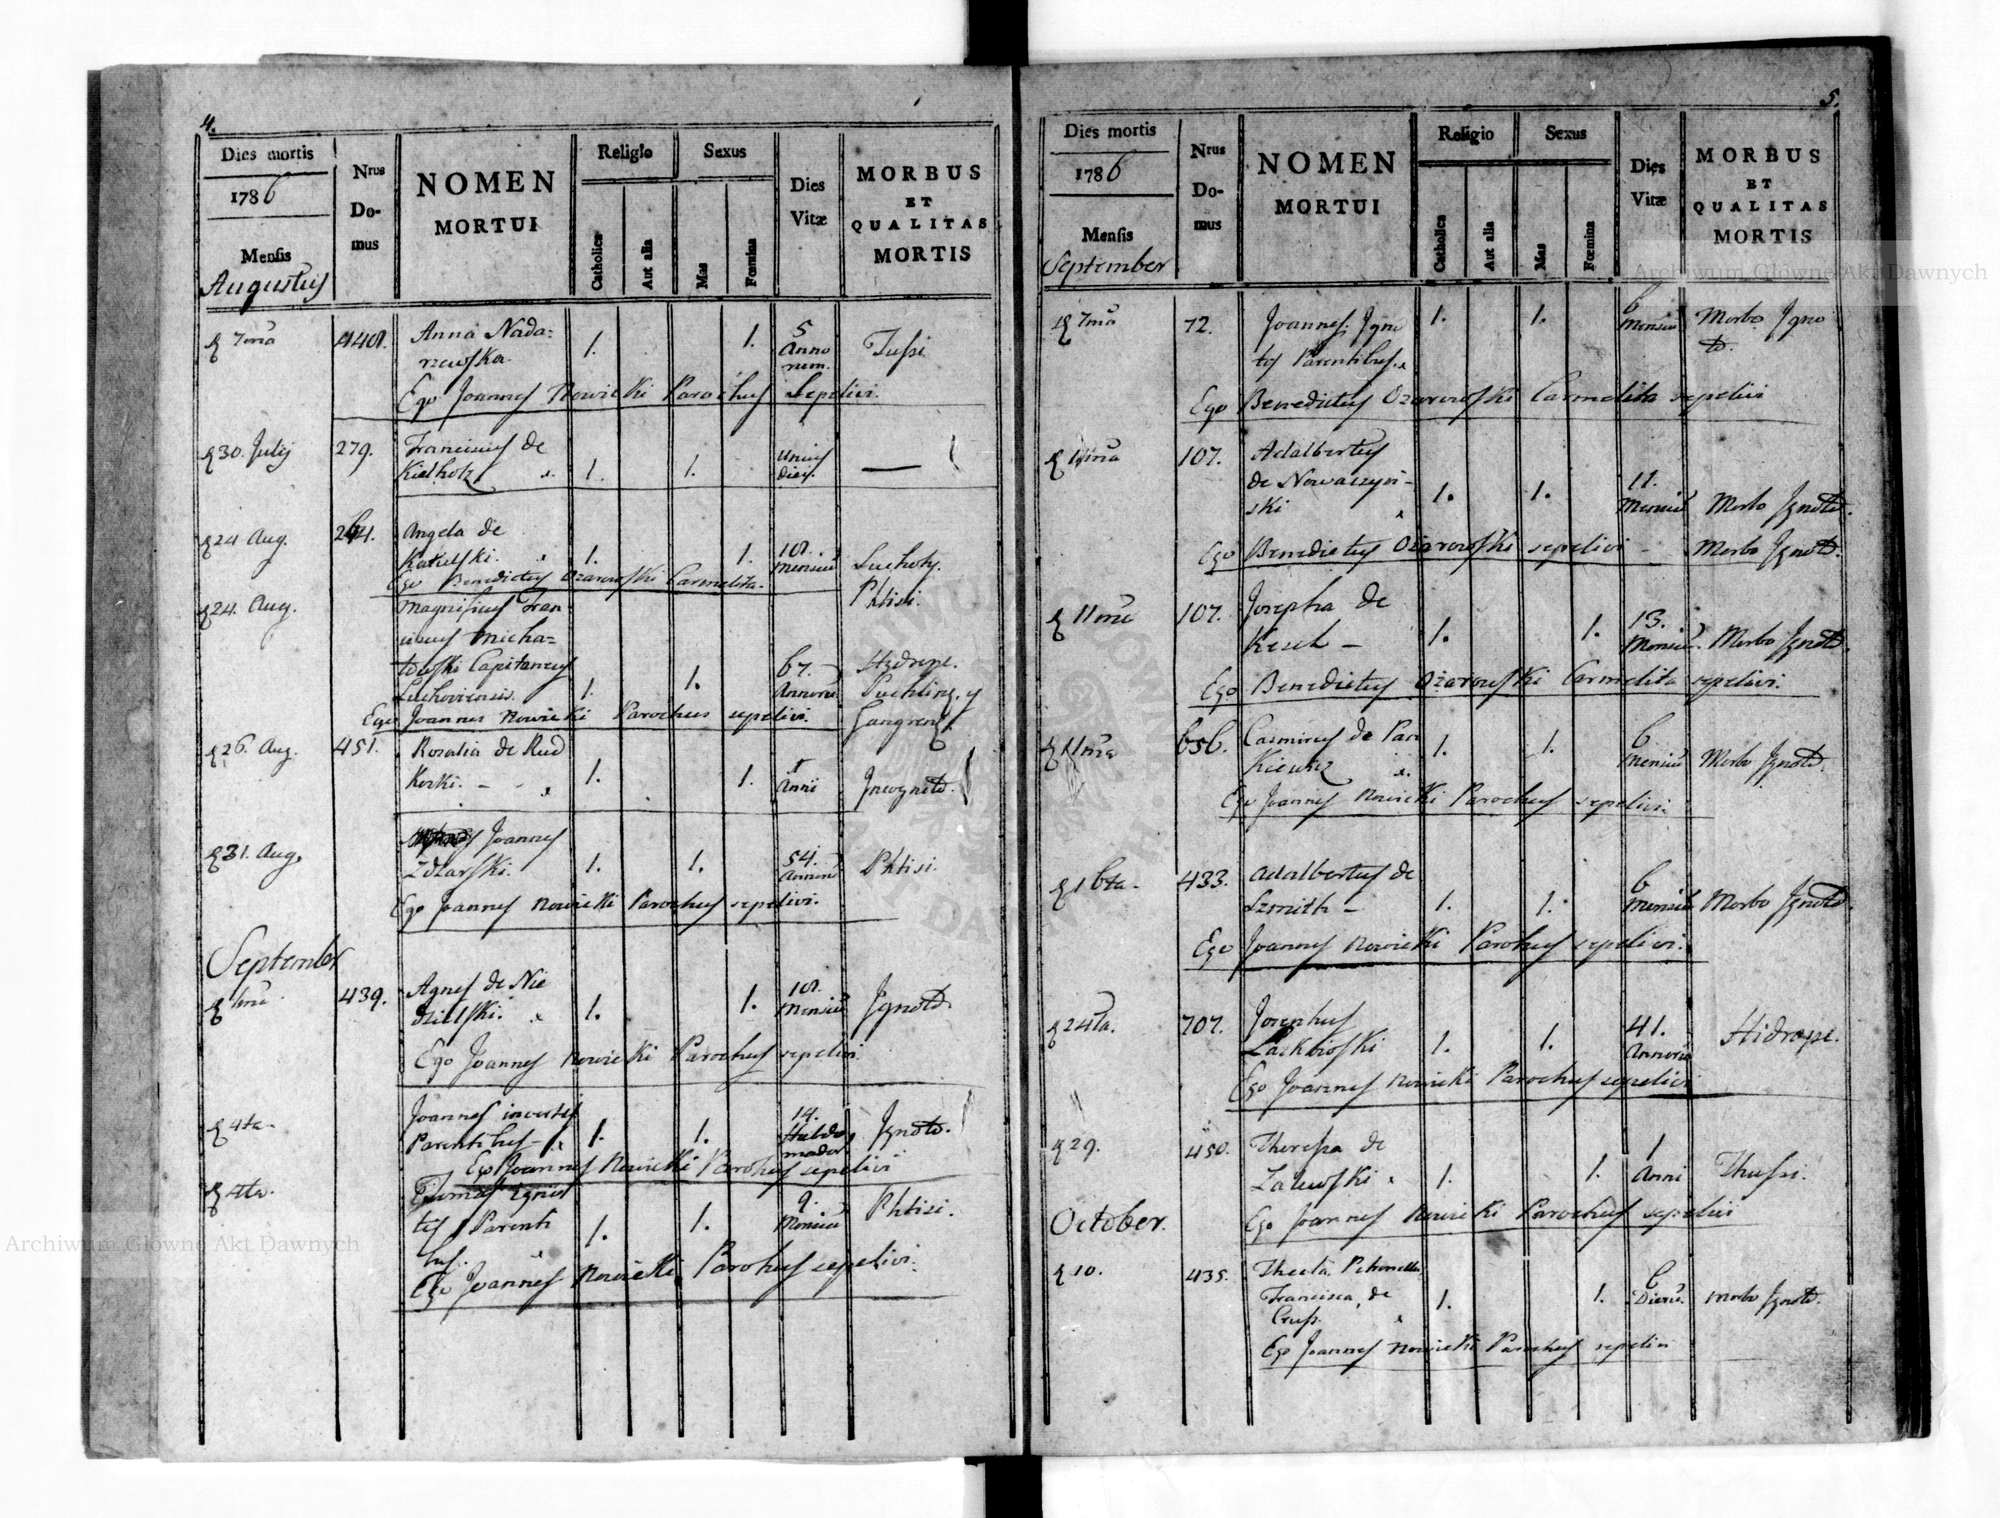 4.
Dies mortis
1786
Mensis
Augustus
Nrus Do- mus
NOMEN
MORTUI
Religio
Catholica
Aut alia
Sexus
Mas
Fœmina
Dies Vitæ
MORBUS
ET
QUALITAS
MORTIS
7ma Anna Nada= 1. 1. 5 Tussi
rzewska Anno
rum.
Ego Joannes Nowicki Parochus sepelivi.
30. Julij 279. Franciscus de unius
Kielholz 1. 1. diei. —
24 Aug. Angela de
1. 1. 10. mensiu Suchoty.
Ego Benedictus Ozarowski Carmelita.
24. Aug. Magnificus Fran Phtisi.
ciscus Micha=
łowski Capitaneus 67. Hidrope.
1. 1. Annoru
Ego Joannes Nowicki Parochus sepelivi.
26. Aug. 451. Rosalia de Rud
Koski. 1. 1. 1 Anni Incognito.
31. Aug. Joannes
Zdzarski. 1. 1. 54. Annoru Phtisi.
Ego Joannes Nowicki Parochus sepelivi.
September
1ma 439. Agnes de Nie
dzielski. 1. 1. 10. Mensiu Ignoto.
Ego Joannes Nowicki Parochus sepelivi
4ta Joannes incertis 14.
Parentibus 1. 1. Hebdo Ignoto.
madar
Ego Joannes Nowicki Parohus sepelivi
4ta. Thomas Ignio
tis Parenti 1. 1. 9. Mensiu Phtisi.
bus.
Ego Joannes Nowicki Parohus sepelivi.
5.
Dies mortis
1786
Mensis
September
Nrus Do- mus
NOMEN
MORTUI
Religio
Catholica
Aut alia
Sexus
Mas
Fœmina
Dies Vitæ
MORBUS
ET
QUALITAS
MORTIS
7ma 72. Joannes Igno 1. 1. 6 mensiu Morbo Igno
tis Parentibus. to.
Ego Benedictus Ozarowski Carmelita sepelivi
107. Adalbertus
de Nowaczyń- 11.
ski 1. 1. Mensiu Morbo Ignoto.
Ego Benedictus Ożarowski sepelivi - Morbo Ignoto.
11ma 107. Josepha de 13.
Kesch — 1. 1. Mensiu. Morbo Ignoto.
Ego Benedictus Ożarowski Carmelita sepelivi.
11ma 656. Casmirus de Pan 1. 1. 6
Kiewicz mensiu Morbo Ignoto.
Ego Joannes Nowicki Parochus sepelivi.
16ta. 433. Adalbertus de 6
Szmith — 1. 1. mensiu Morbo Ignoto.
Ego Joannes Nowicki Parohus sepelivi.
24ta. 707. Josephus 41.
1. 1. Annoru Hidrope.
Ego Joannes Nowicki Parochus sepelivi
29. 450. Theressa de 1
Zalewski 1. 1. Anni Thussi.
October. Ego Joannes Nowicki Parochus sepelivi
10. 435. Thecla, Petronella, 6
Francisca, de 1. 1. Dieru. Morbo Ignoto.
Ego Joannes Nowicki Parochus sepelivi
Archiwum Główne Akt Dawnych
Archiwum Główne Akt Dawnych